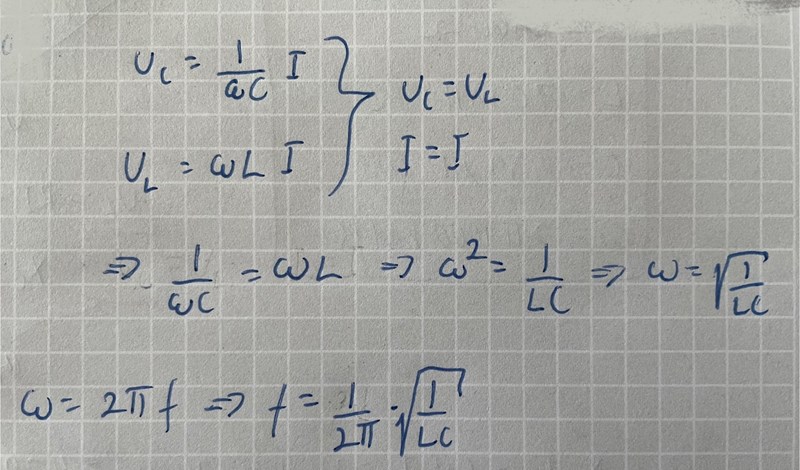 U_C = 1/ωC I } U_C = U_L
U_L = ωL I } I = I
⇒ 1/ωC = ωL ⇒ ω² = 1/LC ⇒ ω = √(1/LC)
ω = 2π f ⇒ f = 1/2π · √(1/LC)